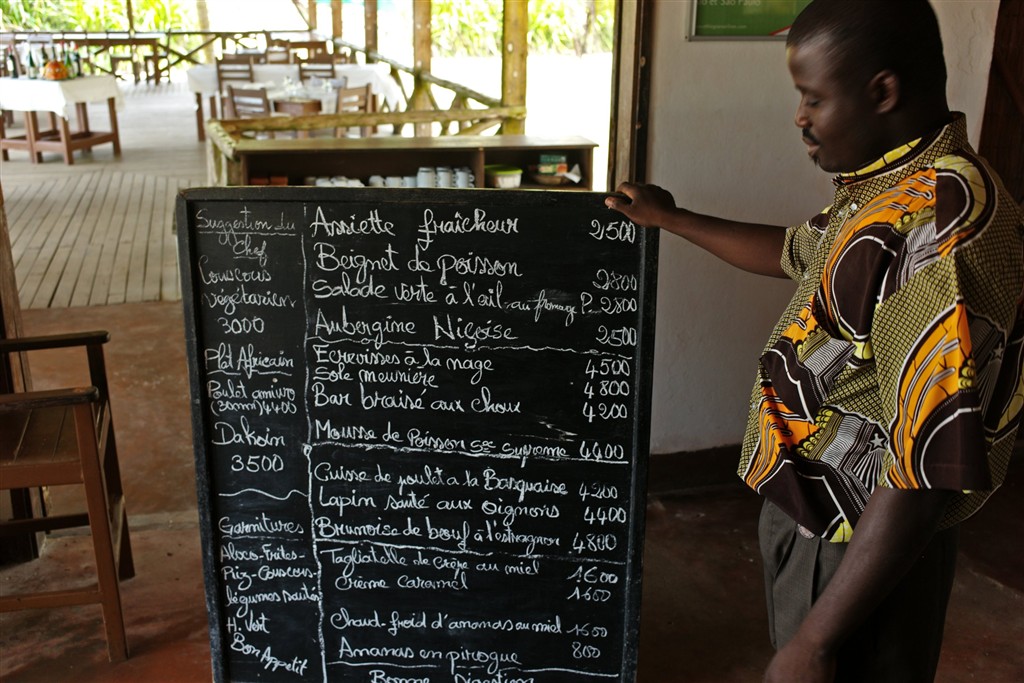 Suggestion du
Chef
Couscous
végétarien
3000
Plat Africain
Poulet
(30mm) 4400
Dakoin
3500
Garnitures
Aloco-Frites-
Riz-Couscous-
légumes sautés
H. Vert
Bon Appetit
Assiette fraîcheur 2500
Beignet de poisson 2800
Salade verte à l'ail-au fromage P. 2800
Aubergine Niçoise 2500
Ecrevisses à la nage 4500
Sole meunière 4800
Bar braisé aux choux 4200
Mousse de Poisson Sce Supreme 4400
Cuisse de poulet a la Basquaise 4200
Lapin sauté aux oignons 4400
Brunoise de bœuf à l'estragnon 4800
Tagliatelle de Crêpe au miel 1600
Crème Caramel 1600
Chaud-froid d'ananas au miel 1600
Ananas en pirogue 800
Bonne Digestion